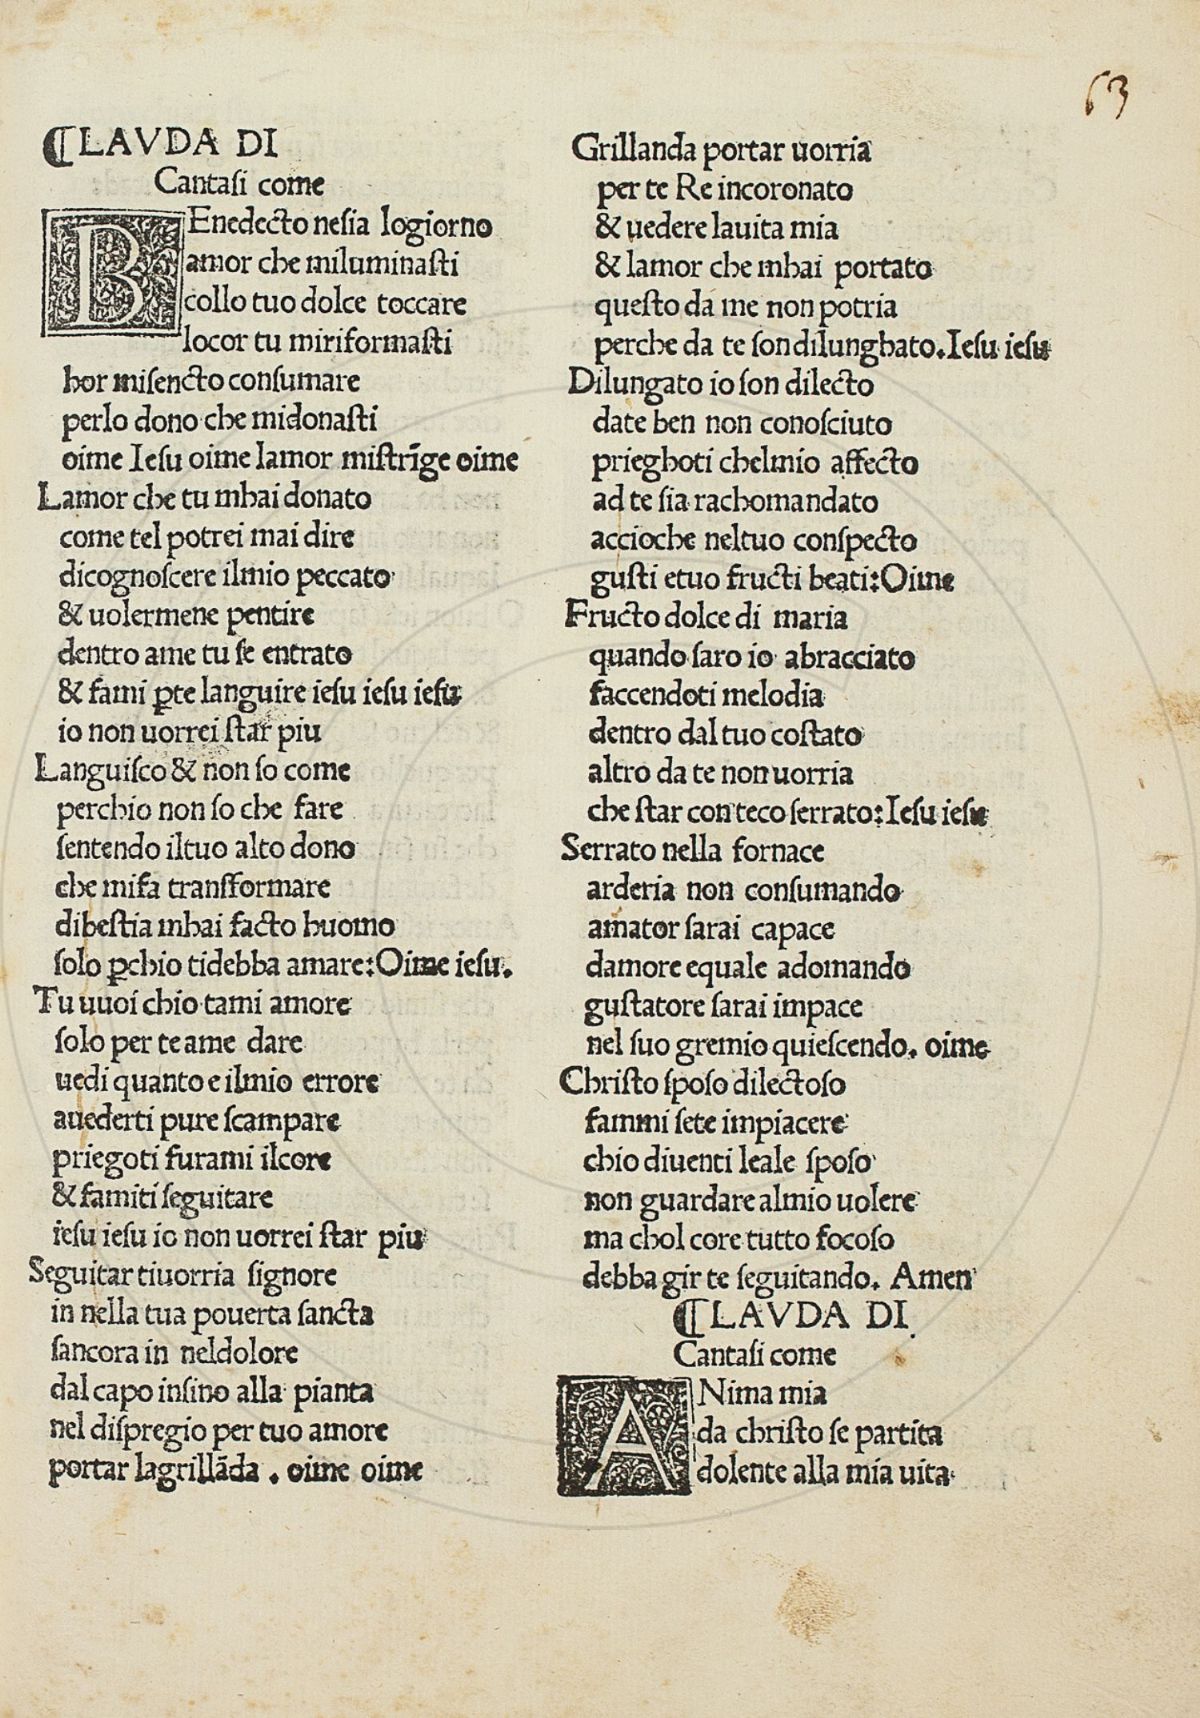 63
¶LAVDA DI
Cantasi come
BEnedecto nesia logiorno
amor che miluminasti
collo tuo dolce toccare
locor tu miriformasti
hor misencto consumare
perlo dono che midonasti
oime Iesu oime lamor mistrīge oime
Lamor che tu mhai donato
come tel potrei mai dire
dicognoscere ilmio peccato
& uolermene pentire
dentro ame tu se entrato
& fami ꝑte languire iesu iesu iesu
io non uorrei star piu
Languisco & non so come
perchio non so che fare
sentendo iltuo alto dono
che mifa transformare
dibestia mhai facto huomo
solo ꝑchio tidebba amare:Oime iesu.
Tu uuoi chio tami amore
solo per te ame dare
uedi quanto e ilmio errore
auederti pure scampare
priegoti furami ilcore
& famiti seguitare
iesu iesu io non uorrei star piu
Seguitar tiuorria signore
in nella tua pouerta sancta
sancora in neldolore
dal capo insino alla pianta
nel dispregio per tuo amore
portar lagrillāda . oime oime
Grillanda portar uorria
per te Re incoronato
& uedere lauita mia
& lamor che mhai portato
questo da me non potria
perche da te son dilunghato.Iesu iesu
Dilungato io son dilecto
date ben non conosciuto
prieghoti chelmio affecto
ad te sia rachomandato
accioche neltuo conspecto
gusti etuo fructi beati:Oime
Fructo dolce di maria
quando saro io abracciato
faccendoti melodia
dentro dal tuo costato
altro da te non uorria
che star con teco serrato:Iesu iesu
Serrato nella fornace
arderia non consumando
amator sarai capace
damore equale adomando
gustatore sarai impace
nel suo gremio quiescendo. oime
Christo sposo dilectoso
fammi sete impiacere
chio diuenti leale sposo
non guardare almio uolere
ma chol core tutto focoso
debba gir te seguitando. Amen
¶LAVDA DI
Cantasi come
ANima mia
da christo se partita
dolente alla mia uita